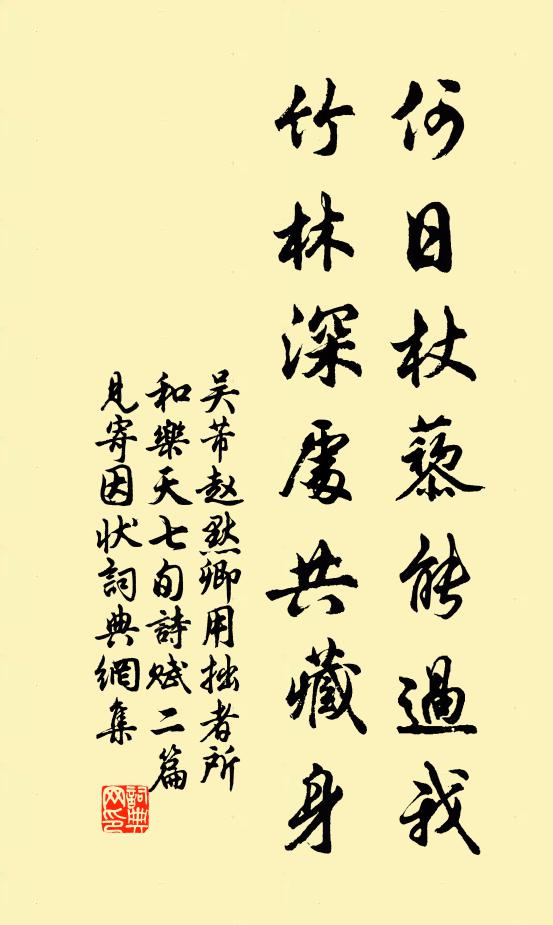 何日杖藜能過我
竹林深處共藏身
吴芾趙黙卿用拙者所
和樂天七旬詩賦二篇
見寄因狀詞典網集
詞典網印